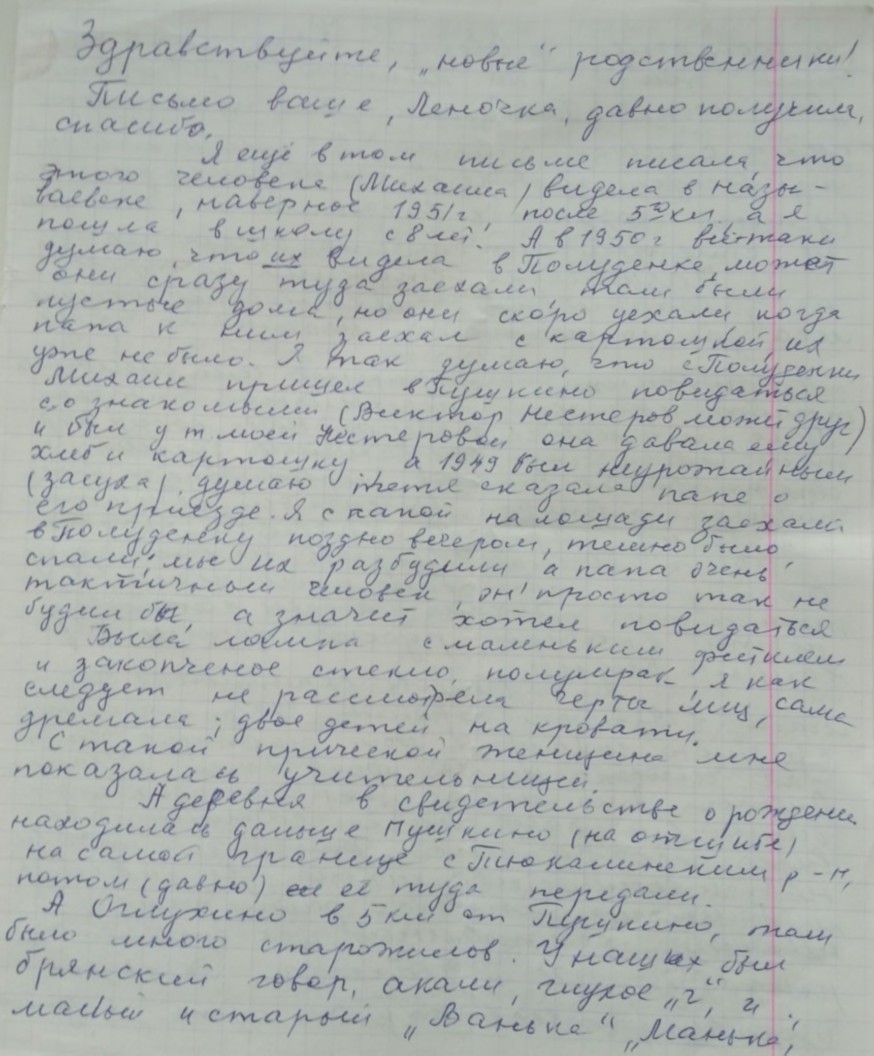 Здравствуйте, „новые" родственники!
Письмо ваше, Леночка, давно получила,
спасибо.
Я ещё в том письме писала, что
этого человека (Михаила) видела в Назы-
ваевске, наверное 1951г, после 5го кл, а я
пошла в школу с 8 лет. А в 1950г всё-таки
думаю, что их видела в Полуденке, может
они сразу туда заехали, там были
пустые дома, но они скоро уехали когда
папа к ним заехал с картошкой, их
уже не было. Я так думаю, что с Полуденки
Михаил пришел в Пушкино повидаться
со знакомыми (Виктор Нестеров может друг)
и был у т. моей Нестеровой она давала ему
хлеб и картошку, а 1949 был неурожайным
(засуха), думаю тётя сказала папе о
его приезде. Я с папой на лошади заехали
в Полуденку поздно вечером, темно было
спали, мы их разбудили, а папа очень
тактичный человек, он просто так не
будил бы, а значит хотел повидаться
Была лампа с маленьким фитилем
и закопченое стекло, полумрак, я как
следует не рассмотрела черты лиц, сама
дремала; двое детей на кровати.
С такой прической женщина мне
показалась учительницей.
А деревня в свидетельстве о рождении
находилась дальше Пушкино (на отшибе)
на самой границе с Тюкалинским р-н,
потом (давно) её туда передали.
А Оглухино в 5 км от Пушкино, там
было много старожилов. У наших был
брянский говор, акали, глухое „г", и
малый и старый „Ванька" „Манька",